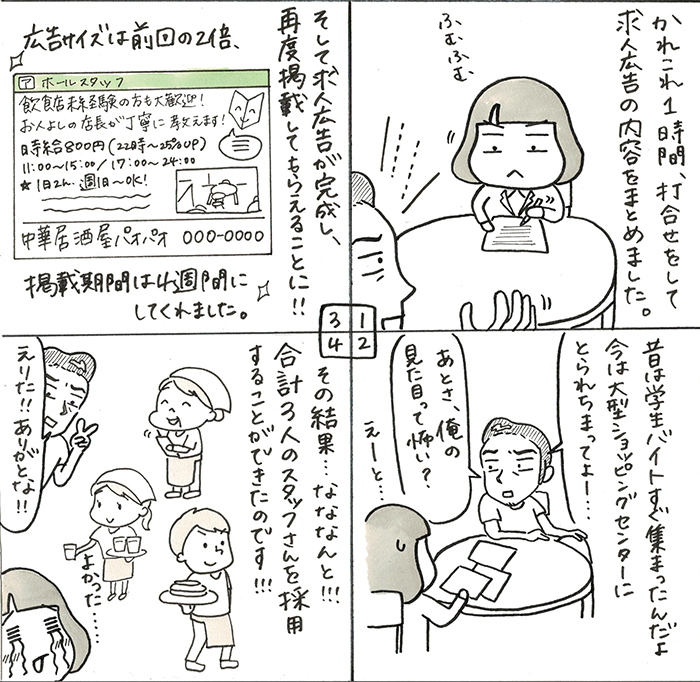 かれこれ1時間、打合せをして
求人広告の内容をまとめました。
ふむふむ
昔は学生バイトすぐ集まったんだよ
今は大型ショッピングセンターに
とられちまってよー…
あとさ、俺の
見た目って怖い?
えーと…
1
2
3
4
そして求人広告が完成し、
再度掲載してもらえることに!!
広告サイズは前回の2倍、
ア ホールスタッフ
飲食店未経験の方も大歓迎!
お人よしの店長が丁寧に教えます!
時給800円(22時〜25%UP)
11:00〜15:00/17:00〜24:00
★1日2h、週1日〜OK!
中華居酒屋パオパオ 000-0000
掲載期間は4週間に
してくれました。
その結果…なななんと!!!
合計3人のスタッフさんを採用
することができたのです!!!
えりた!!ありがとな!!
よかった……